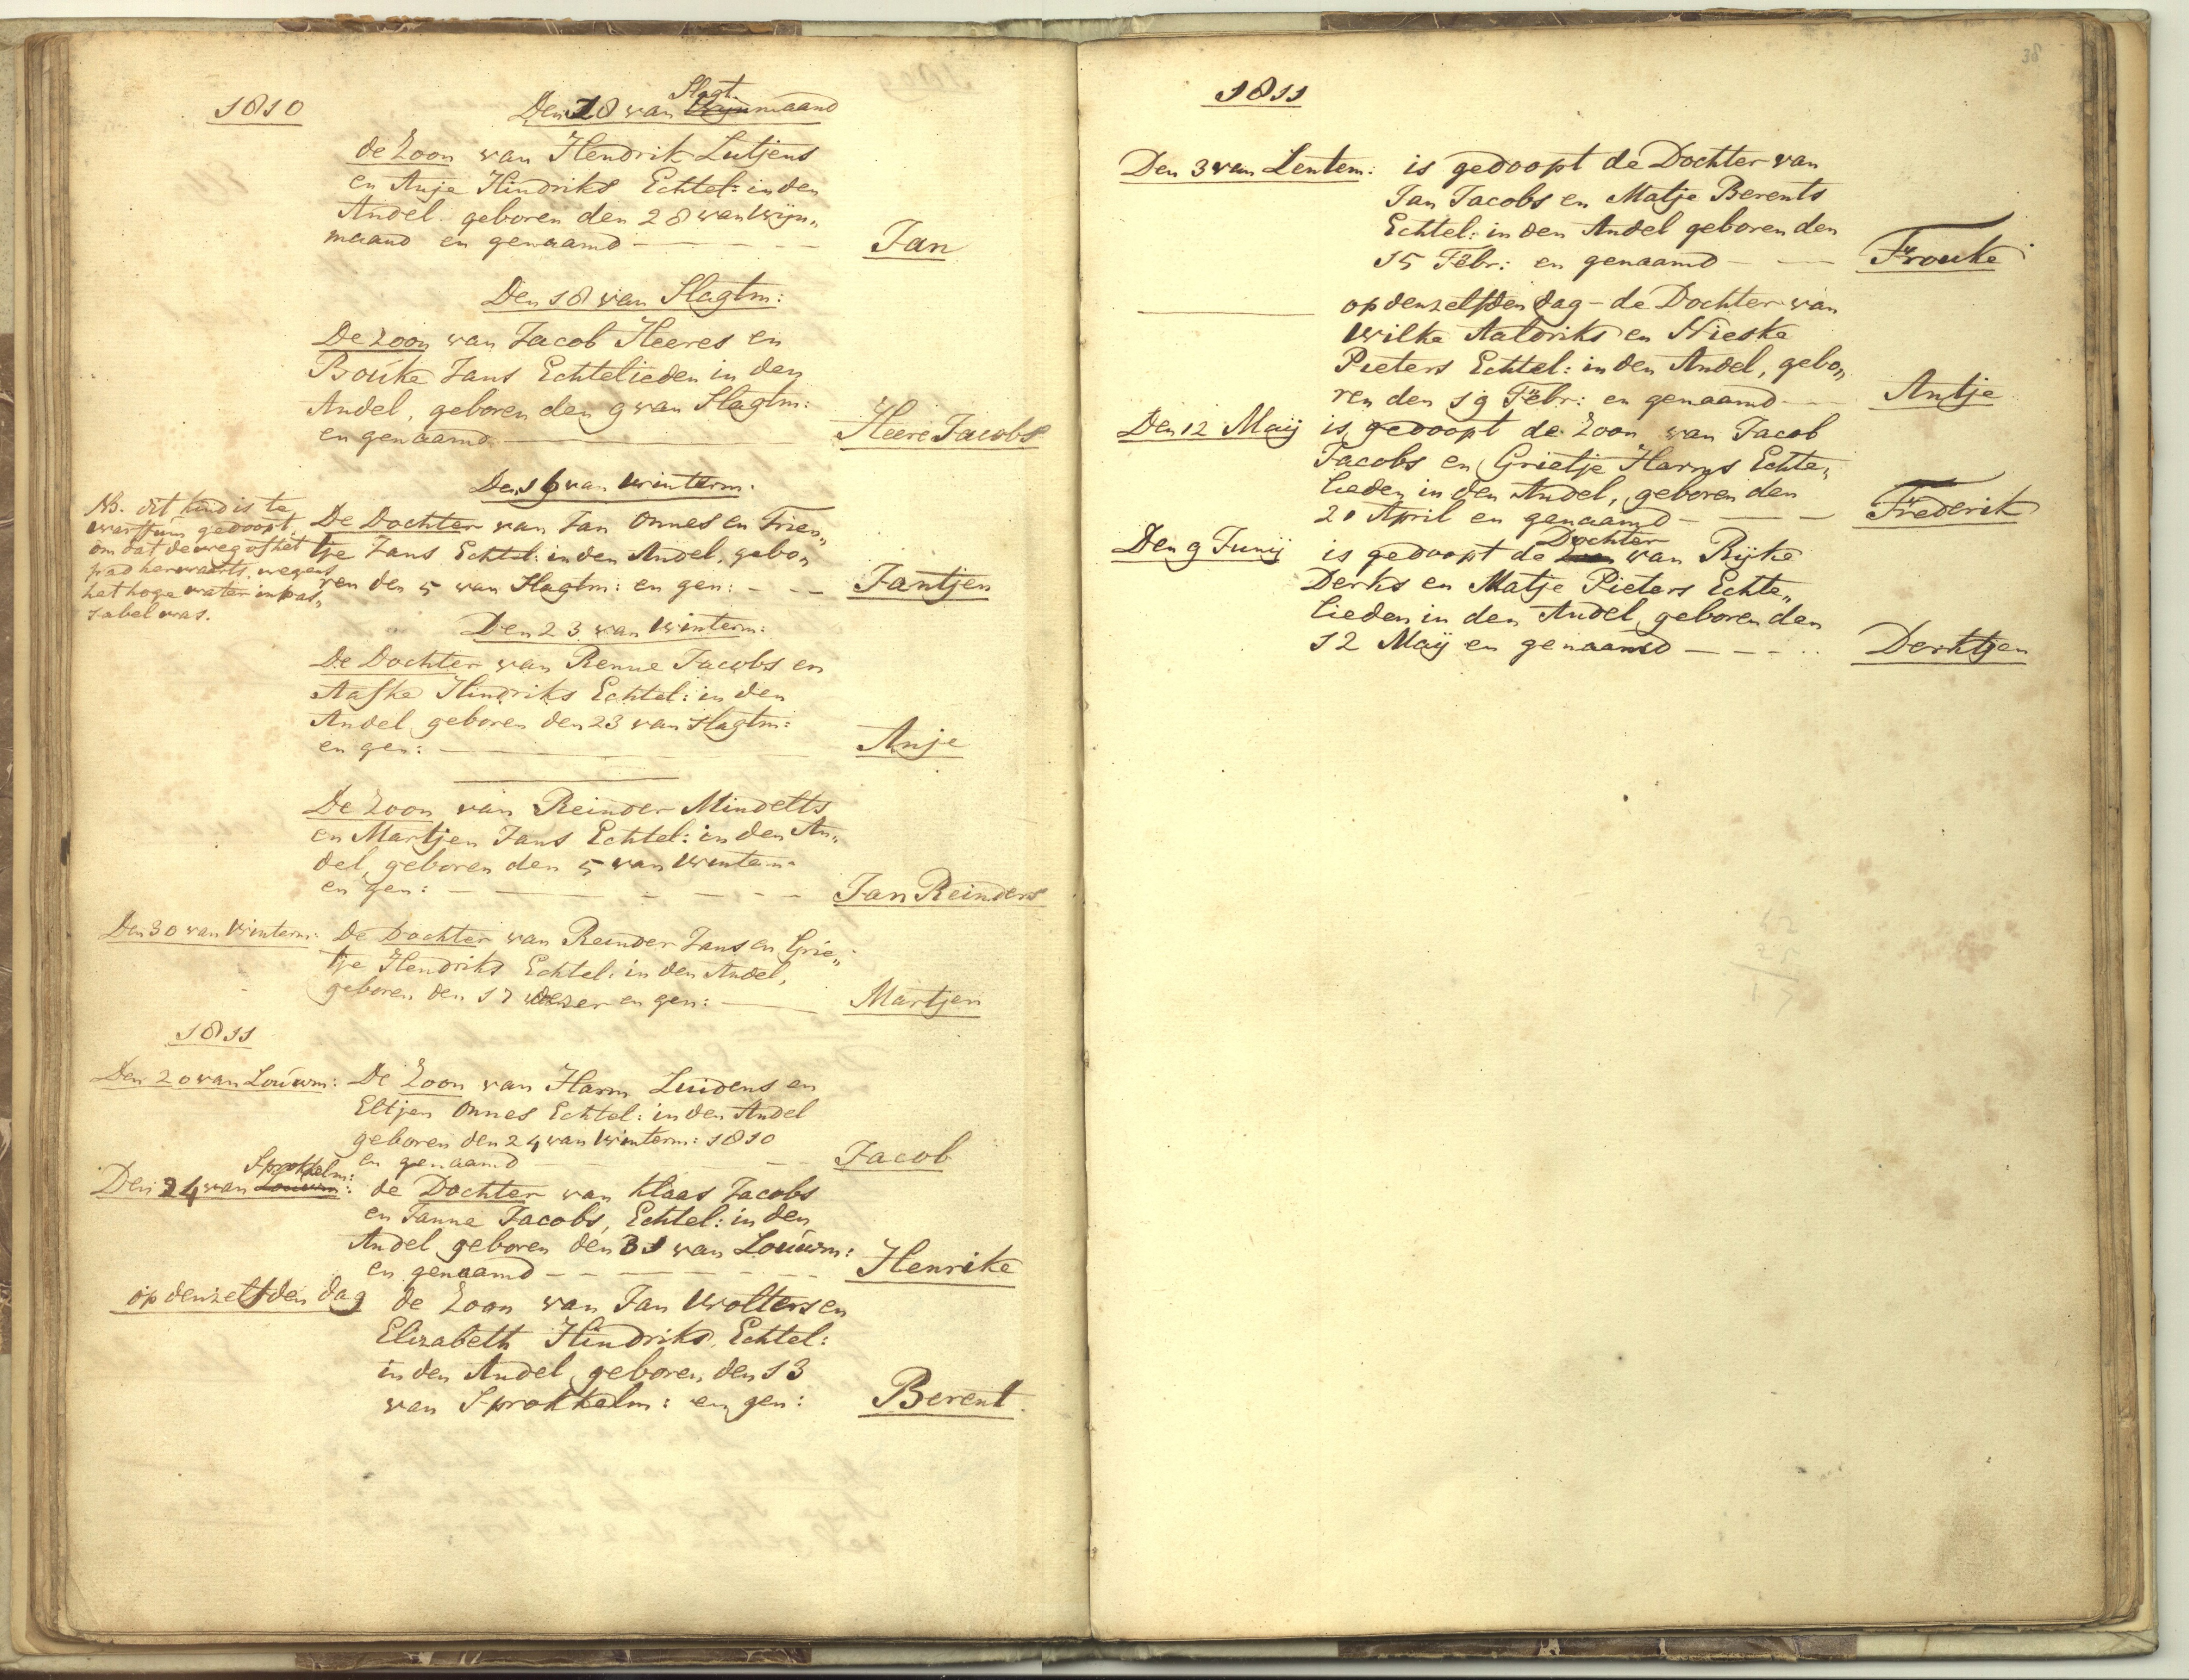 1810
Slagt
Den 18 van Wijnmaand
de Zoon van Hendrik Lutjens
en Anje Hindriks Echtel: in den
Andel geboren den 28 van Wijn„
maand en genaamd - Jan
Den 18 van Slagtm:
De Zoon van Jacob Heeres en
Bouke Jans Echtelieden in den
Andel, geboren den 9 van Slagtm:
en genaamd - Heere Jacobs
Den 16 van Winterm:
NB. dit kind is te
warffum gedoopt,
om dat de weg of het
pad herwaarts, wegens
het hoge water inpas„
sabel was.
De Dochter van Jan Onnes en Trien„
tje Jans Echtel: in den Andel, gebo„
ren den 5 van Slagtm: en gen: - Jantjen
Den 23 van Winterm:
De Dochter van Renne Jacobs en
Aafke Hindriks Echtel: in den
Andel geboren den 23 van Slagtm:
en gen: - Anje
De Zoon van Reinder Mindelts
en Martjen Jans Echtel: in den An„
del, geboren den 5 van Winterm:
en gen: - Jan Reinders
Den 30 van Winterm: De Dochter van Reinder Jans en Grie„
tje Hendriks Echtel: in den Andel,
geboren den 17 dezer en gen: - Martjen
1811
Den 20 van Louwm: De Zoon van Harm Luidens en
Eltjen Onnes Echtel: in den Andel
geboren den 24 van Winterm: 1810
en genaamd - Jacob
Sprokkelm:
Den 24 van Louwm: de Dochter van Klaas Jacobs
en Janna Jacobs, Echtel: in den
Andel geboren den 31 van Louwm:
en genaamd - Henrike
op denzelfden dag de Zoon van Jan Wolters en
Elizabeth Hindriks, Echtel:
in den Andel, geboren den 13
van Sprokkelm: en gen: Berent
38
1811
Den 3 van Lentem: is gedoopt de Dochter van
Jan Jacobs en Matje Berents
Echtel: in den Andel geboren den
15 Febr: en genaamd - Frouke
op denzelfden dag - de Dochter van
Wilke Aaldriks en Nieske
Pieters Echtel: in den Andel, gebo„
ren den 19 Febr: en genaamd - Antje
Den 12 Maij is gedoopt de Zoon van Jacob
Jacobs en Grietje Harms Echte„
lieden in den Andel, geboren den
20 April en genaamd - Frederik
Dochter
Den 9 Junij is gedoopt de Zoon van Rijke
Derks en Matje Pieters Echte„
lieden in den Andel, geboren den
12 Maij en genaamd - Derktjen